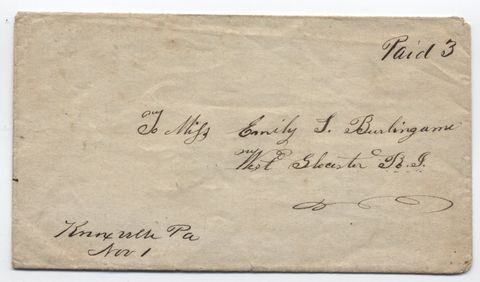 Paid 3
To Miss Emily S. Burlingame
West Glocester R.I.
Knoxville Pa
Nov 1